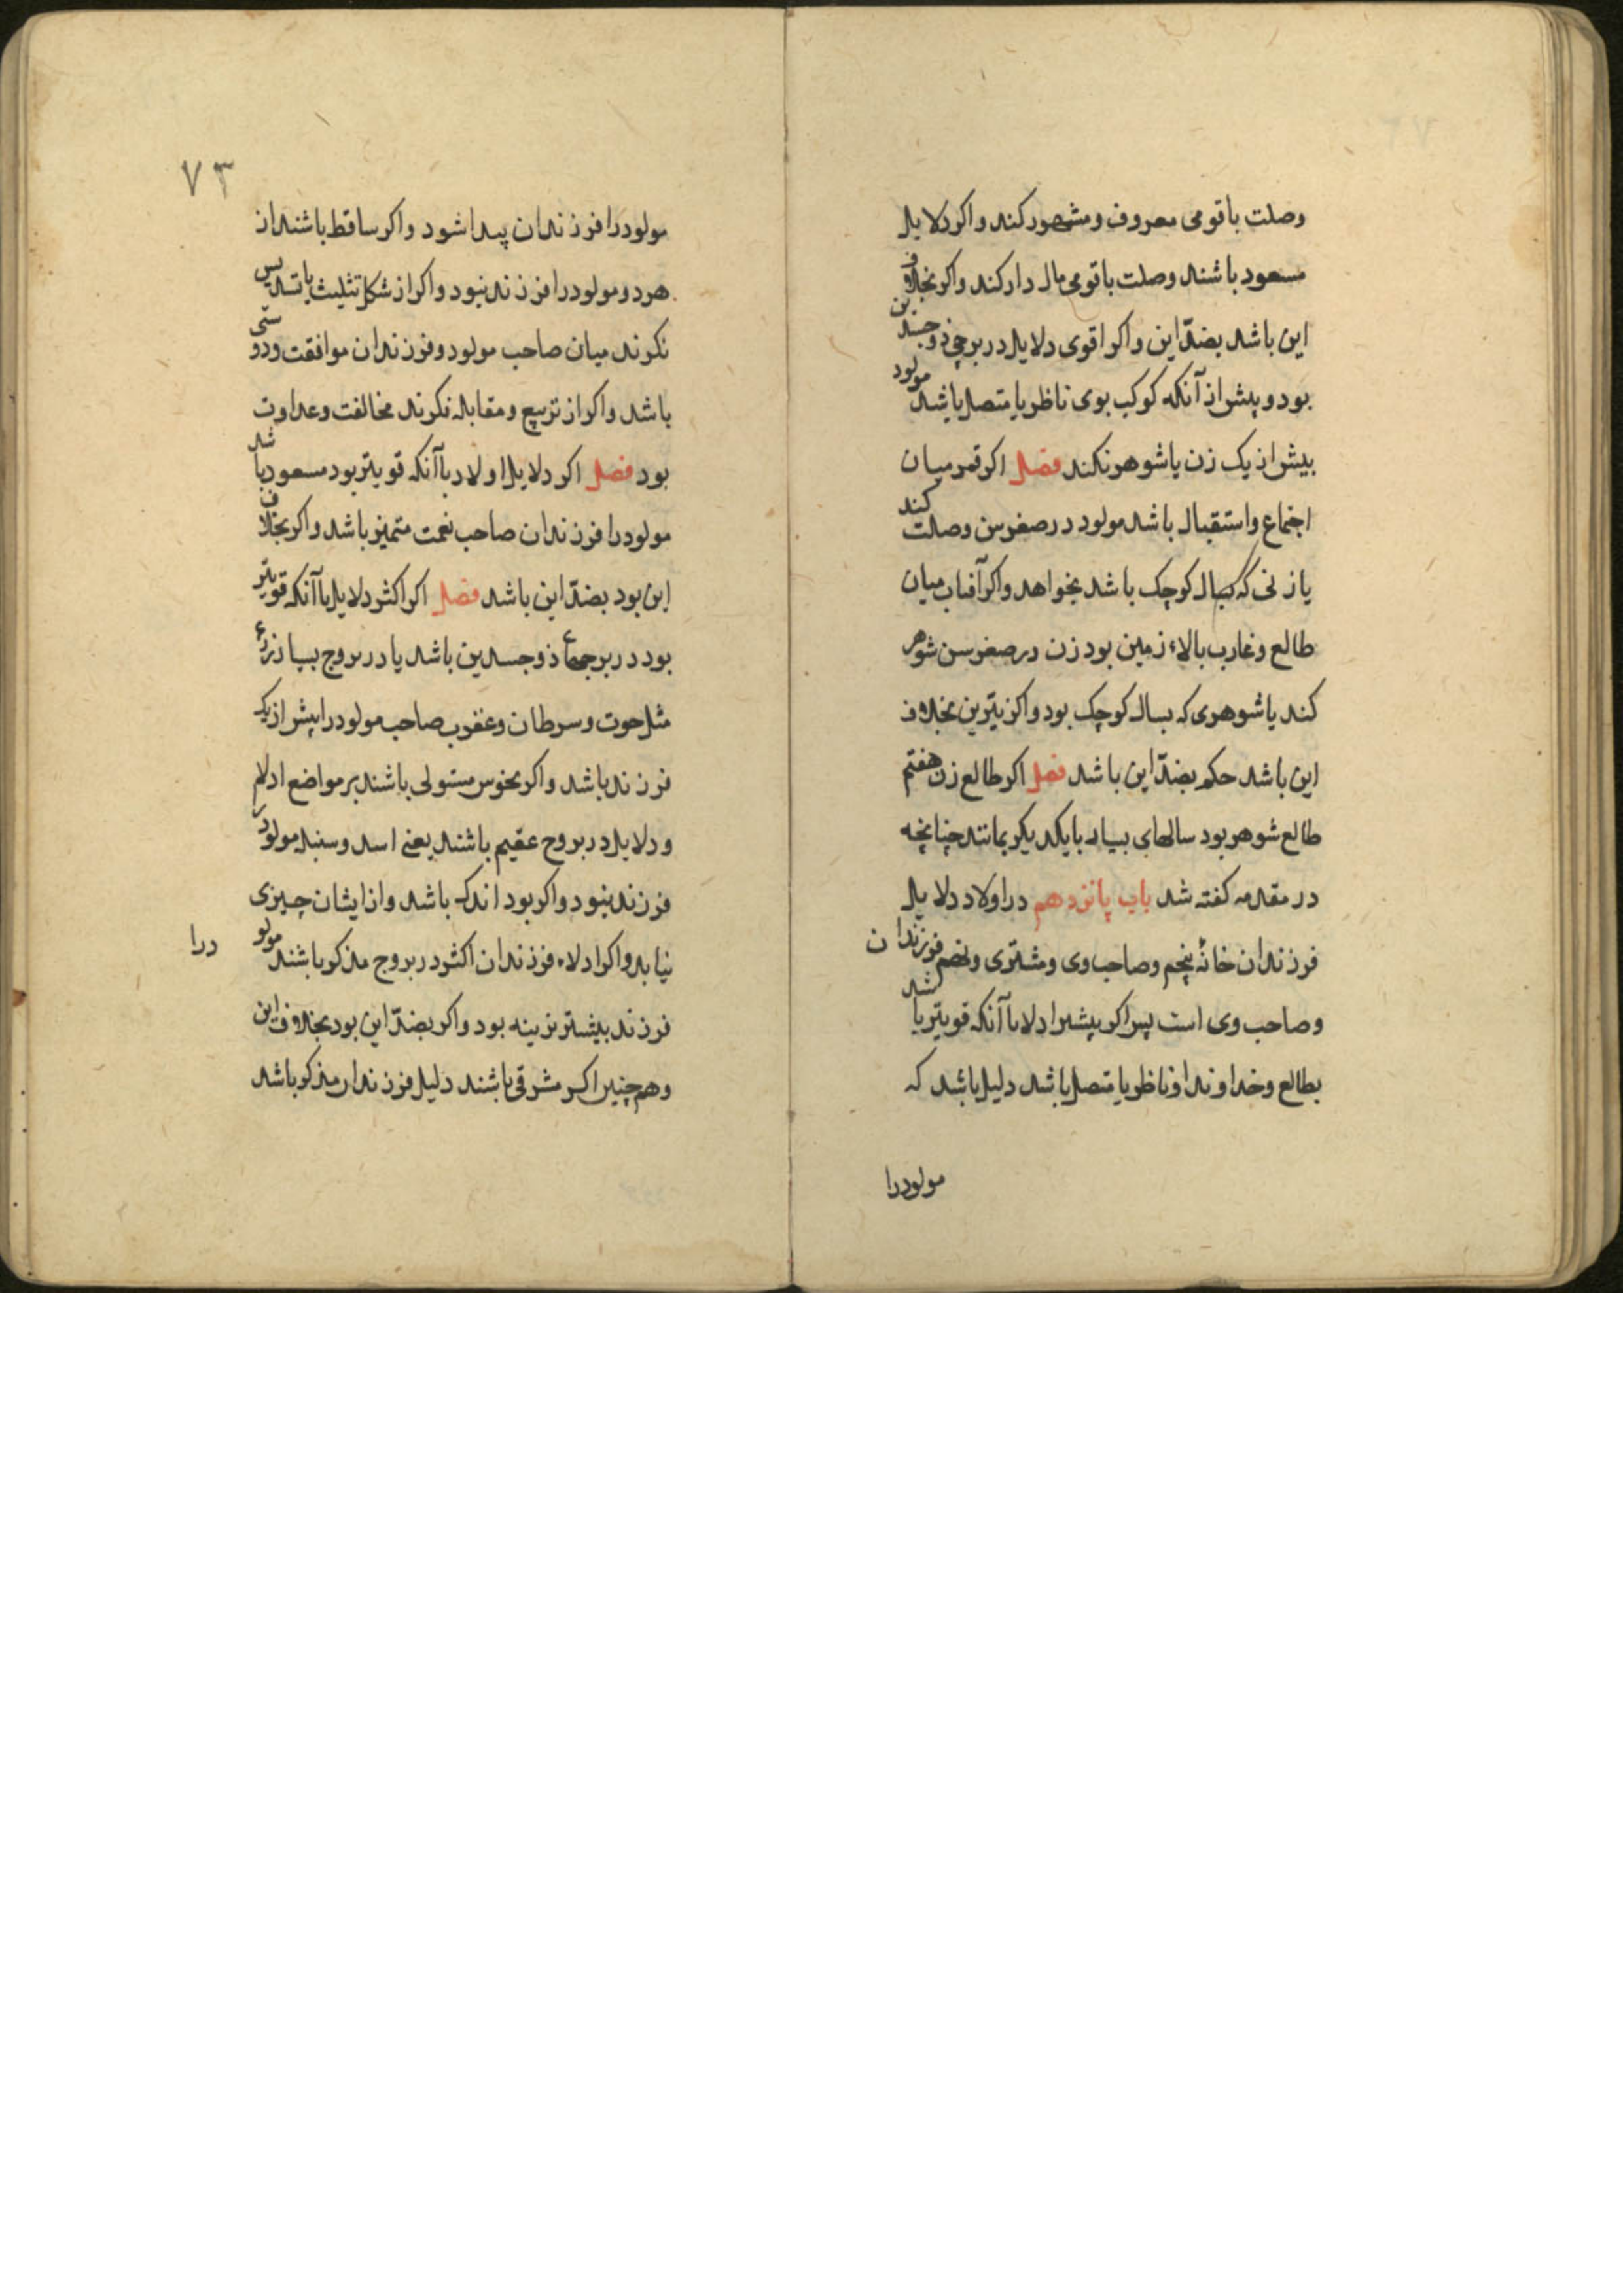 وصلت باقومی معروف ومشهور کند واکر دلایل
مسعود باشند وصلت باقومی مال دار کند واکر بخلاف
این باشد بضدّ این واکر اقوی دلایل در برجی ذوجسدین
بود و پیش از آنکه کوکب بوی ناظر یا متصل باشد مولود
بیش از یک زن یا شوهر نکند فصل اکر قمر میان
اجتماع واستقبال باشد مولود در صغر سن وصلت کند
یا زنی که بسال کوچک باشد بخواهد واکر آفتاب میان
طالع وغارب بالاء زمین بود زن در صغر سن شوهر
کند یا شوهری که بسال کوچک بود واکر نیّرین بخلاف
این باشد حکم بضدّ این باشد فصل اکر طالع زن هفتم
طالع شوهر بود سالهای بسیار بایکدیکر بمانند چنانچه
در مقدمه کفته شد باب پانزدهم در اولاد دلایل
فرزندان خانهٔ پنجم وصاحب وی ومشتری وسهم فرزندان
وصاحب وی است پس اکر بیشتر ادلا با آنکه قویتر باشد
بطالع وخداوند او ناظر یا متصل باشد دلیل باشد که
مولودرا
۷۳
مولودرا فرزندان پیدا شود واکر ساقط باشند از
هردو مولودرا فرزند نبود واکر از شکل تثلیث یا تسدیس
نکرند میان صاحب مولود وفرزندان موافقت ودوستی
باشد واکر از تربیع ومقابله نکرند مخالفت وعداوت
بود فصل اکر دلایل اولاد با آنکه قویتر بود مسعود باشد
مولودرا فرزندان صاحب نعمت متمیز باشد واکر بخلاف
این بود بضدّ این باشد فصل اکر اکثر دلایل با آنکه قویتر
بود در برجهاء ذوجسدین باشد یا در بروج بسیار زرع
مثل حوت وسرطان وعقرب صاحب مولودرا بیش از یک
فرزند باشد واکر نحوس مستولی باشند بر مواضع ادلا
ودلایل در بروج عقیم باشند یعنی اسد وسنبله مولودرا
فرزند نبود واکر بود اندک باشد واز ایشان چیزی
نیابد واکر ادلاء فرزندان اکثر در بروج مذکر باشند مولودرا
فرزند بیشتر نرینه بود واکر بضدّ این بود بخلاف این
وهمچنین اکر مشرقی باشند دلیل فرزندان مذکر باشد